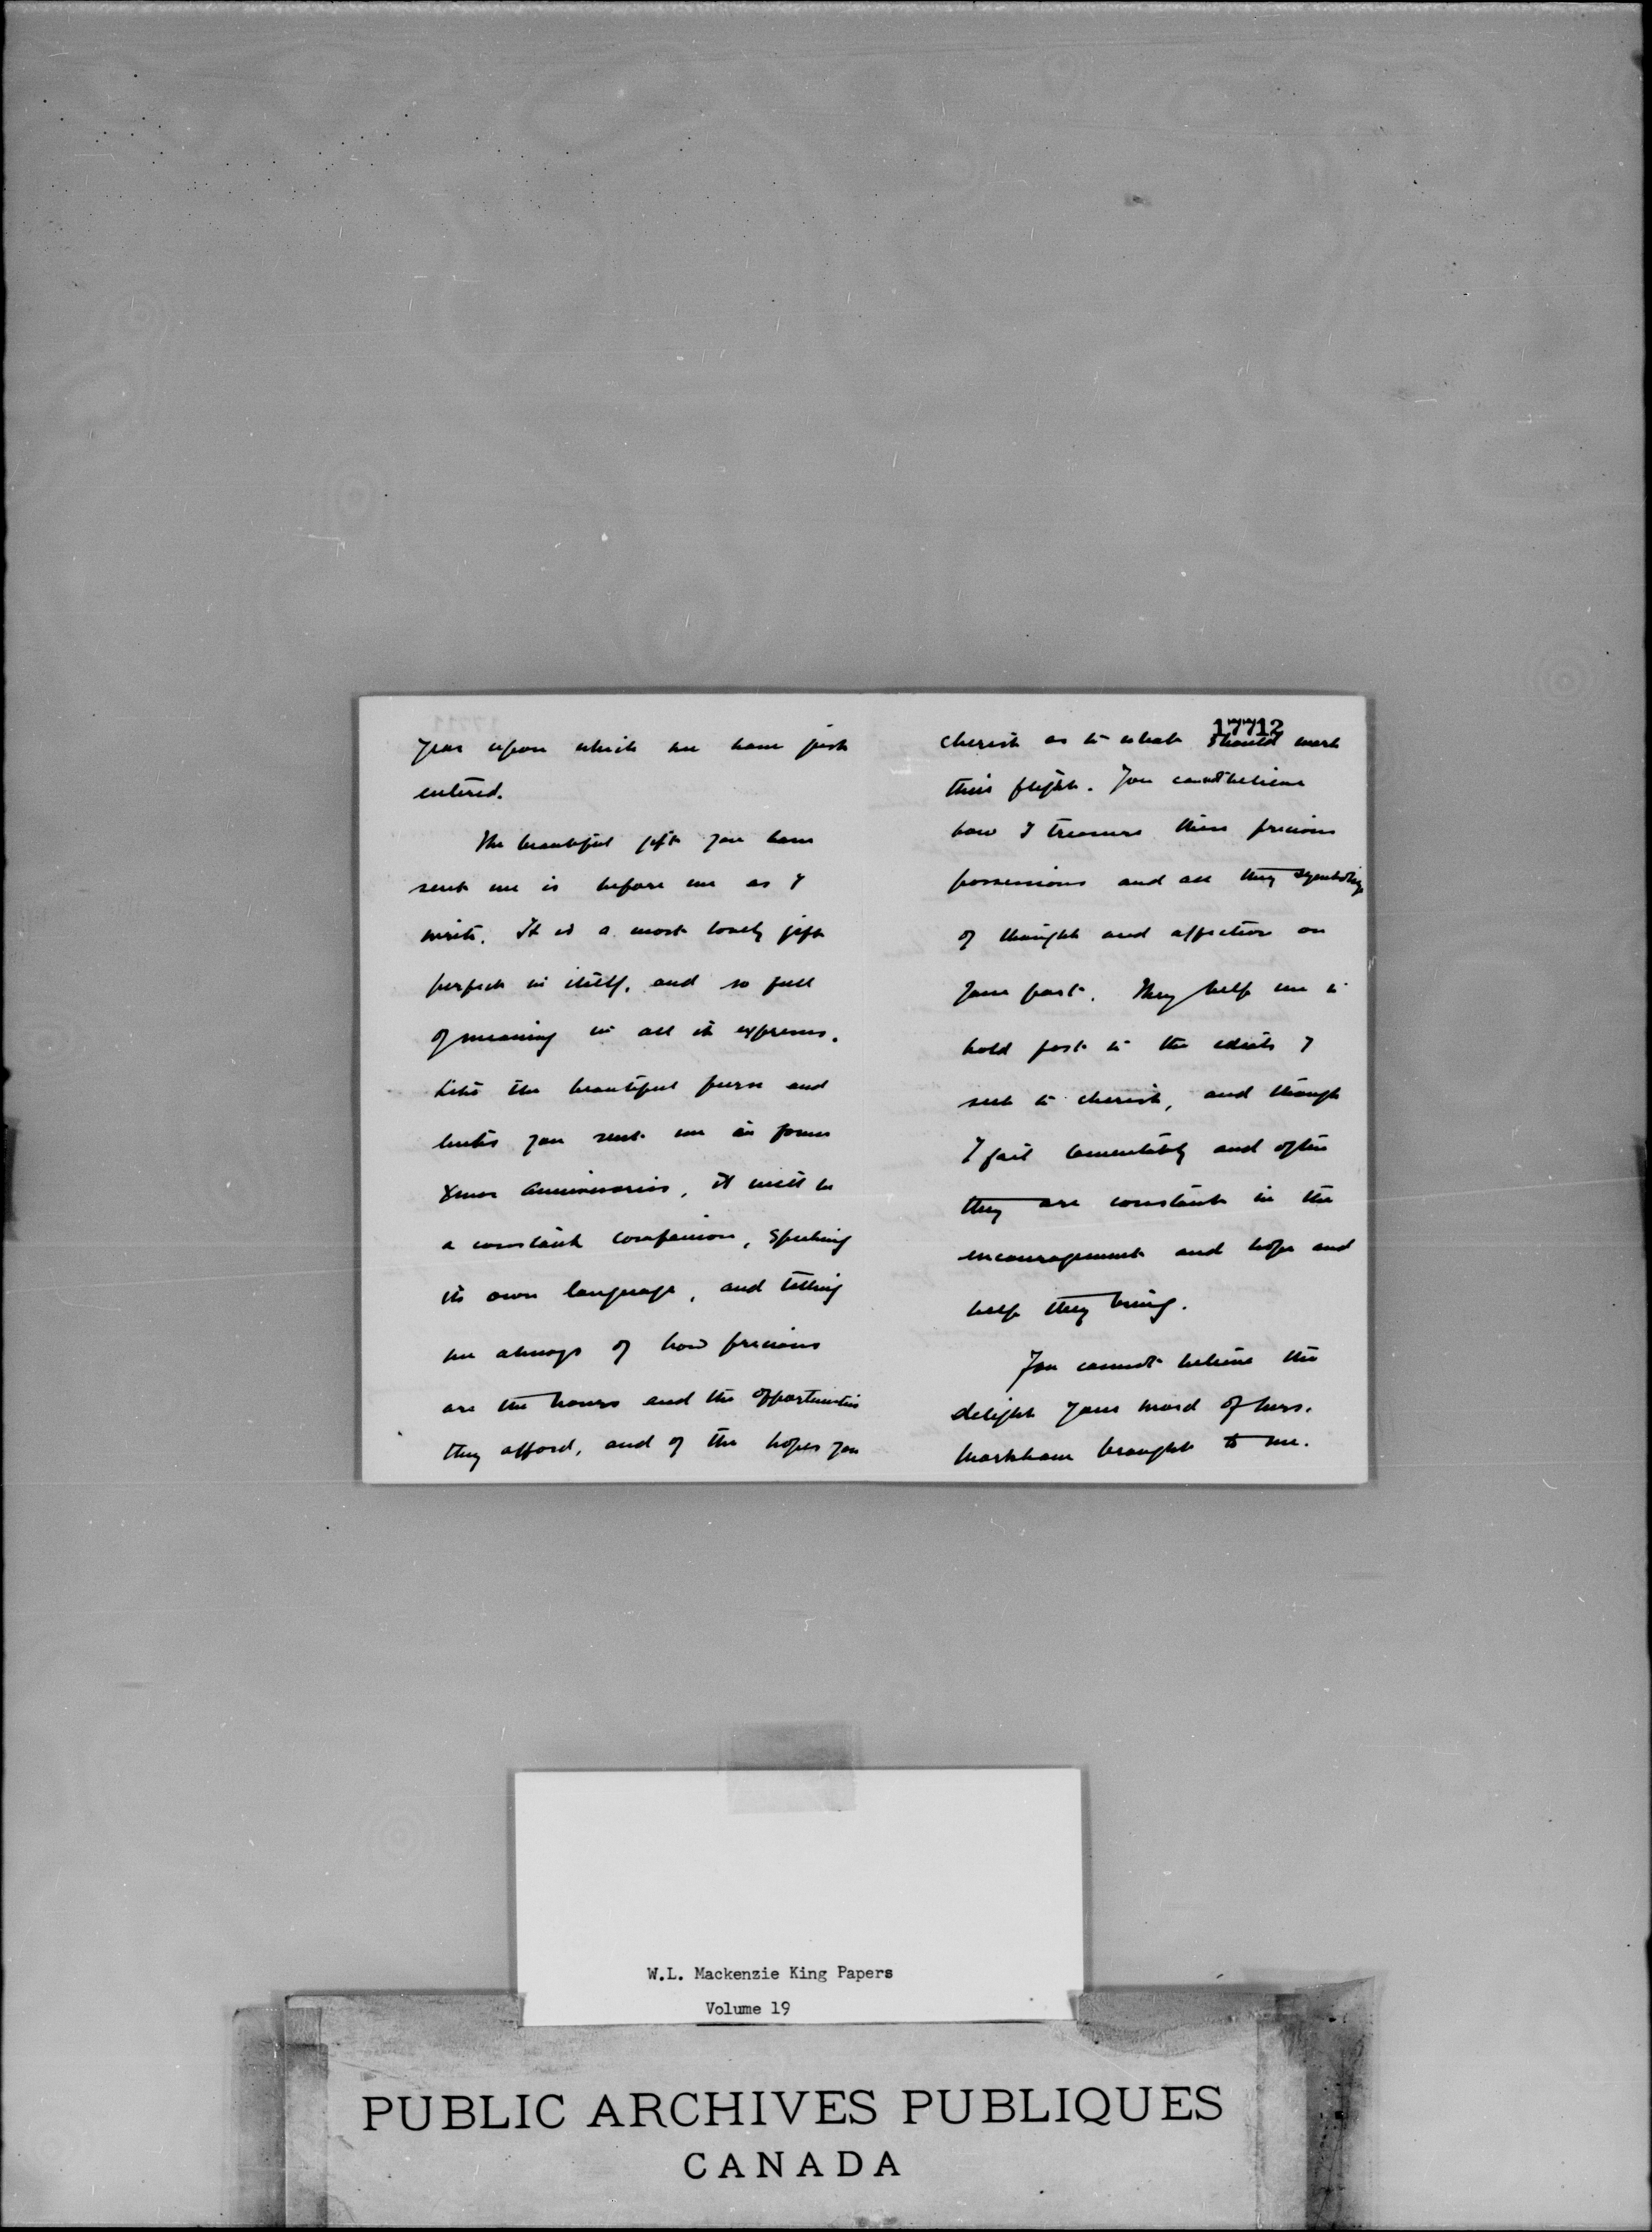 year upon which we have just
entered.
The beautiful gift you have
sent me is before me as I
write. It is a most lovely gift
perfect in itself, and so full
of meaning in all it expresses.
Like the beautiful purse and
links you sent me in former
Xmas anniversaries, it will be
a constant companion, speaking
its own language, and telling
me always of how precious
are the hours and the opportunities
they afford, and of the hopes you
17712
cherish as to what should mark
their flight. You cannot believe
how I treasure these precious
possessions and all they symbolize
of thought and affection on
your part. They help me to
hold fast to the ideals I
seek to cherish, and though
I fail lamentably and often
they are constant in the
encouragement and hope and
help they bring.
You cannot believe the
delight your word of Mrs.
Markham brought to me.
W.L. Mackenzie King Papers
Volume 19
PUBLIC ARCHIVES PUBLIQUES
CANADA